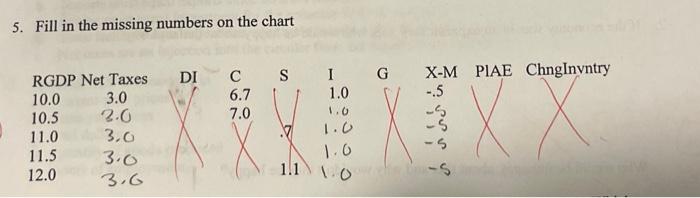 5. Fill in the missing numbers on the chart
RGDP Net Taxes DI C S I G X-M PlAE ChngInvntry
10.0 3.0 6.7 1.0 -.5
10.5 3.0 7.0 1.0 -5
11.0 3.0 .7 1.0 -5
11.5 3.0 1.0 -5
12.0 3.0 1.1 1.0 -5